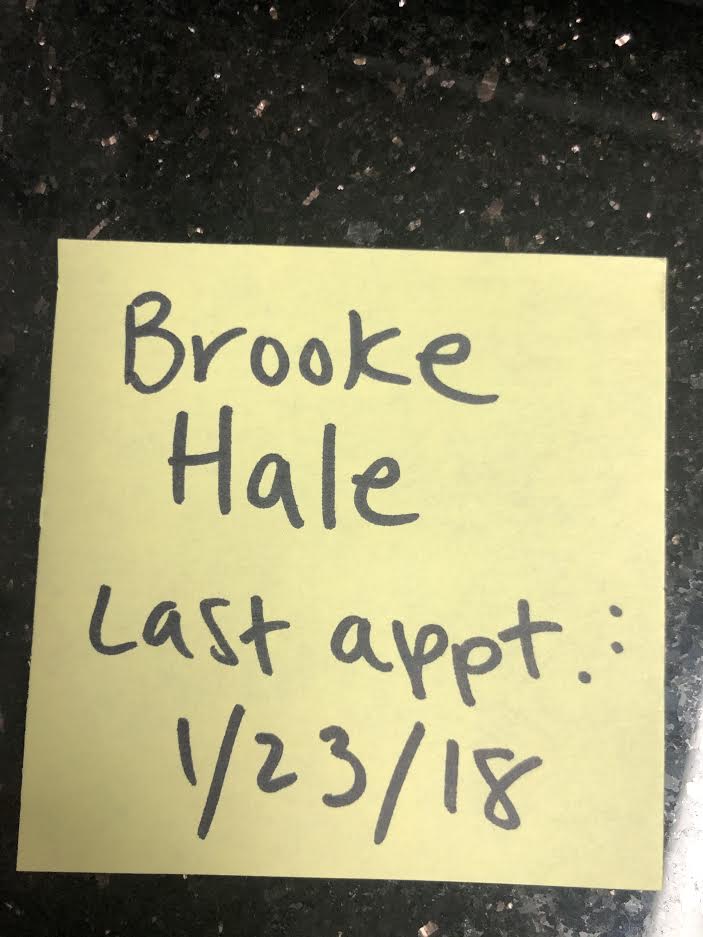 Brooke
Hale
Last appt.:
1/23/18